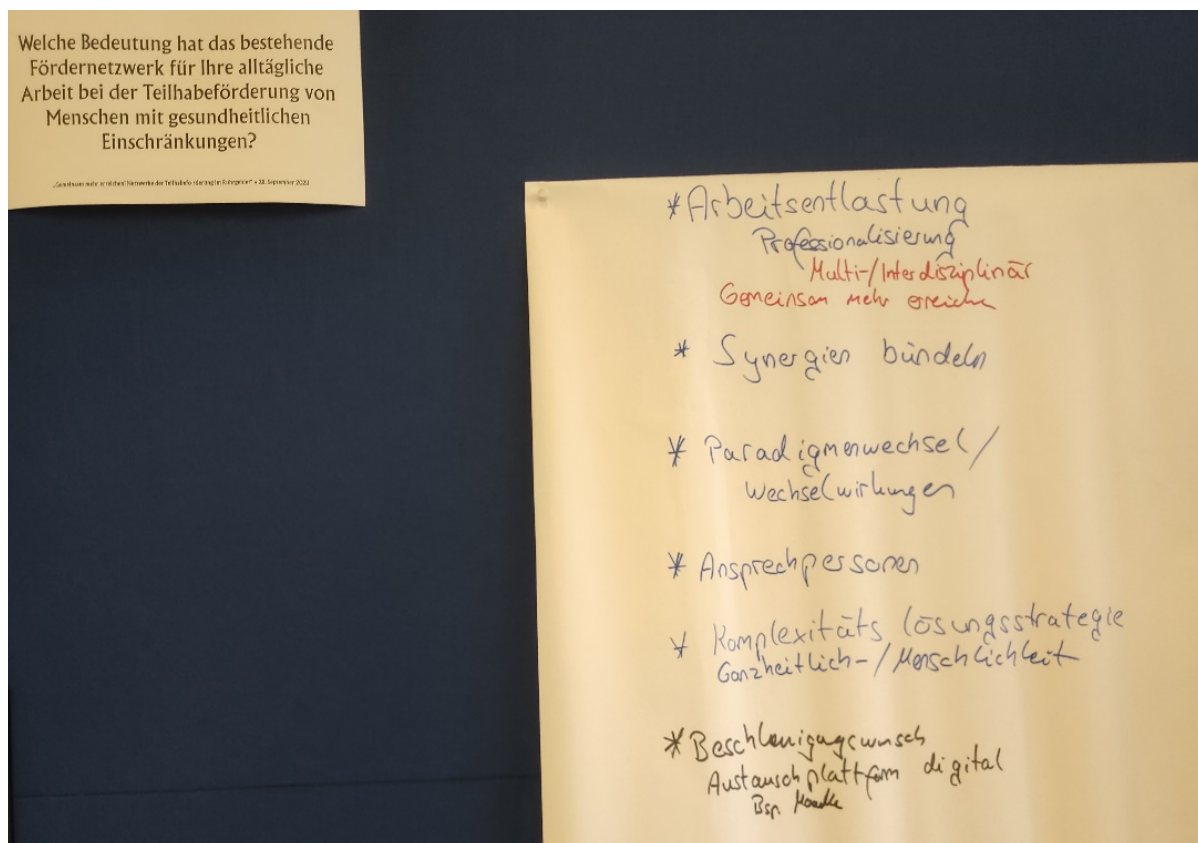 Welche Bedeutung hat das bestehende
Fördernetzwerk für Ihre alltägliche
Arbeit bei der Teilhabeförderung von
Menschen mit gesundheitlichen
Einschränkungen?
„Gemeinsam mehr erreichen! Netzwerke der Teilhabeförderung im Ruhrgebiet“ • 28. September 2023
*Arbeitsentlastung
Professionalisierung
Multi-/Interdisziplinär
Gemeinsam mehr erreichen
* Synergien bündeln
* Paradigmenwechsel/
Wechselwirkungen
* Ansprechpersonen
* Komplexitäts lösungsstrategie
Ganzheitlich-/Menschlichkeit
*Beschleunigungswunsch
Austauschplattform digital
Bsp.